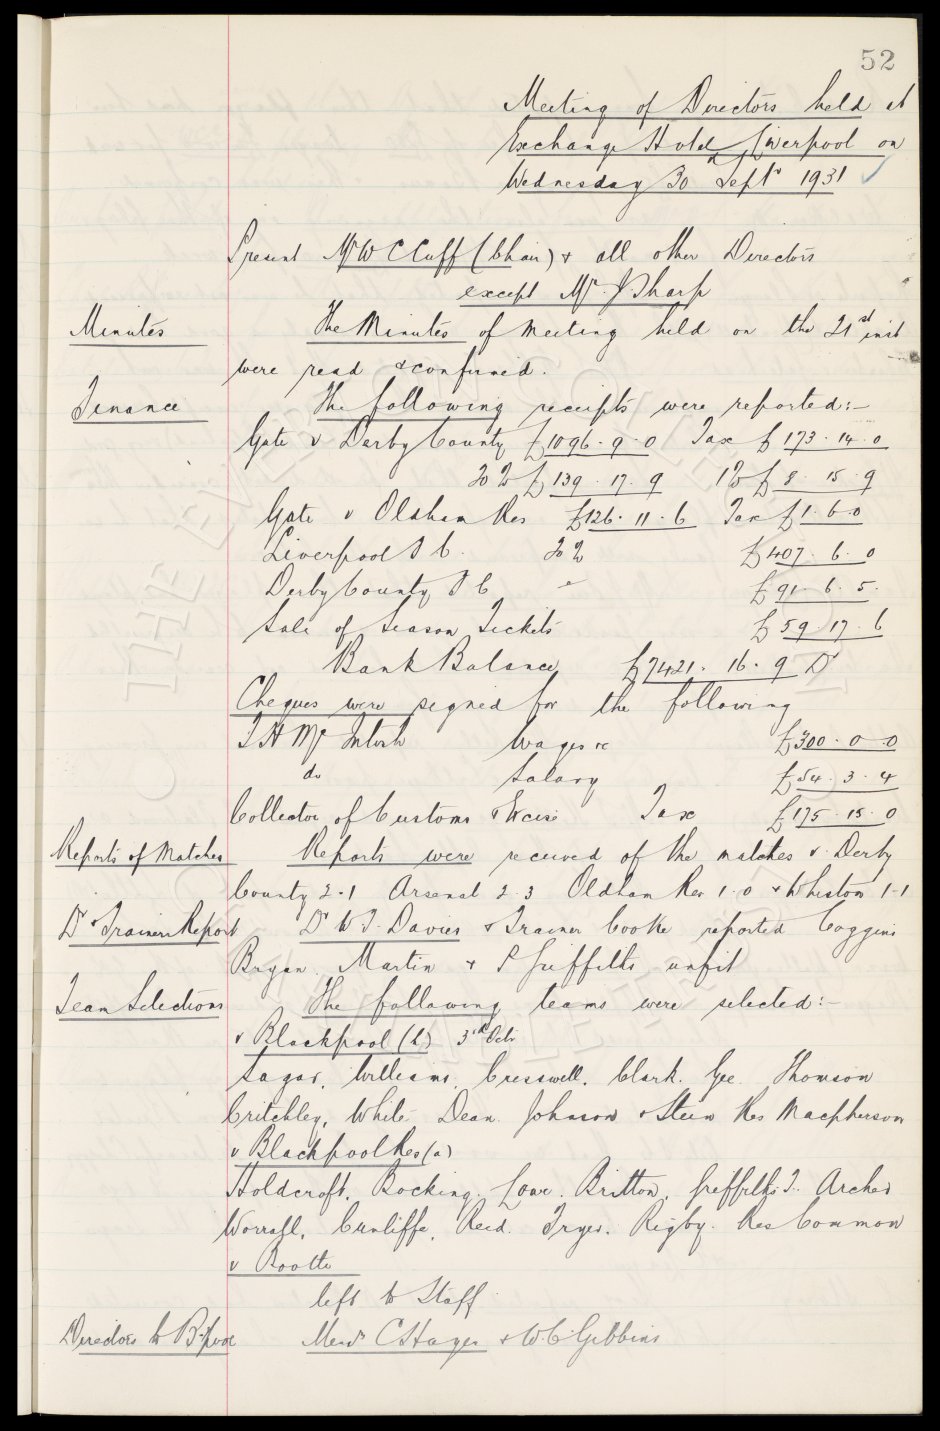 52
Meeting of Directors held at
Exchange Hotel Liverpool on
Wednesday 30th Septr 1931
Present Mr W C Cuff (Chair) & all other Directors
except Mr. J. Sharp
Minutes The Minutes of meeting held on the 21st inst
were read & confirmed.
Finance The following receipts were reported:-
Gate v Derby County £1096. 9. 0 Tax £173. 14. 0
20% £139. 17. 9 1% £8. 15. 9
Gate v Oldham Res £126. 11. 6 Tax £1. 6. 0
Liverpool F C. 20% £407. 6. 0
Derby County F C " £91. 6. 5.
Sale of Season Tickets £59. 17. 6
Bank Balance £7421. 16. 9 Dr
Cheques were signed for the following
T H Mc Intosh Wages &c £300. 0. 0
do Salary £54. 3. 4
Collector of Customs & Excise Tax £175. 15. 0
Reports of Matches Reports were received of the matches v. Derby
County 2-1 Arsenal 2-3 Oldham Res 1-0 & Whiston 1-1
Dr & Trainers Report Dr W T. Davies & Trainer Cooke reported Coggins
Bryan. Martin & P Griffiths unfit
Team Selections The following teams were selected:-
v Blackpool (h) 3rd Octr
Sagar, Williams, Cresswell, Clark. Gee. Thomson
Critchley, White. Dean. Johnson & Stein Res Macpherson
v Blackpool Res (a)
Holdcroft. Bocking. Lowe. Britton, Griffiths T. Archer
Worrall, Cunliffe, Reid. Fryer. Rigby. Res Common
v Bootle
left to Staff
Directors to B-pool Messrs C S Hayes & W C Gibbins